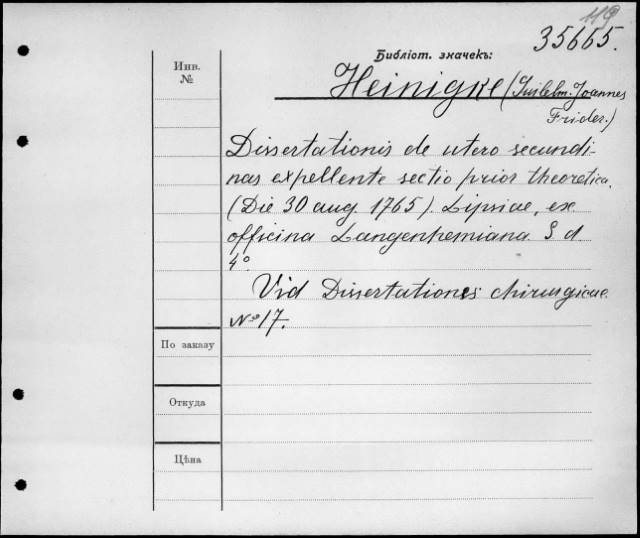 119
35665.
Инв.
№
Библіот. значекъ:
Heinigke (Guilelm. Joannes
Frider.)
Dissertationis de utero secundi-
nas expellente sectio prior theoretica.
(Die 30 aug. 1765). Lipsiae, ex
officina Langenhemiana S d.
4°
Vid Dissertationes chirurgicae.
№ 17.
По заказу
Откуда
Цѣна